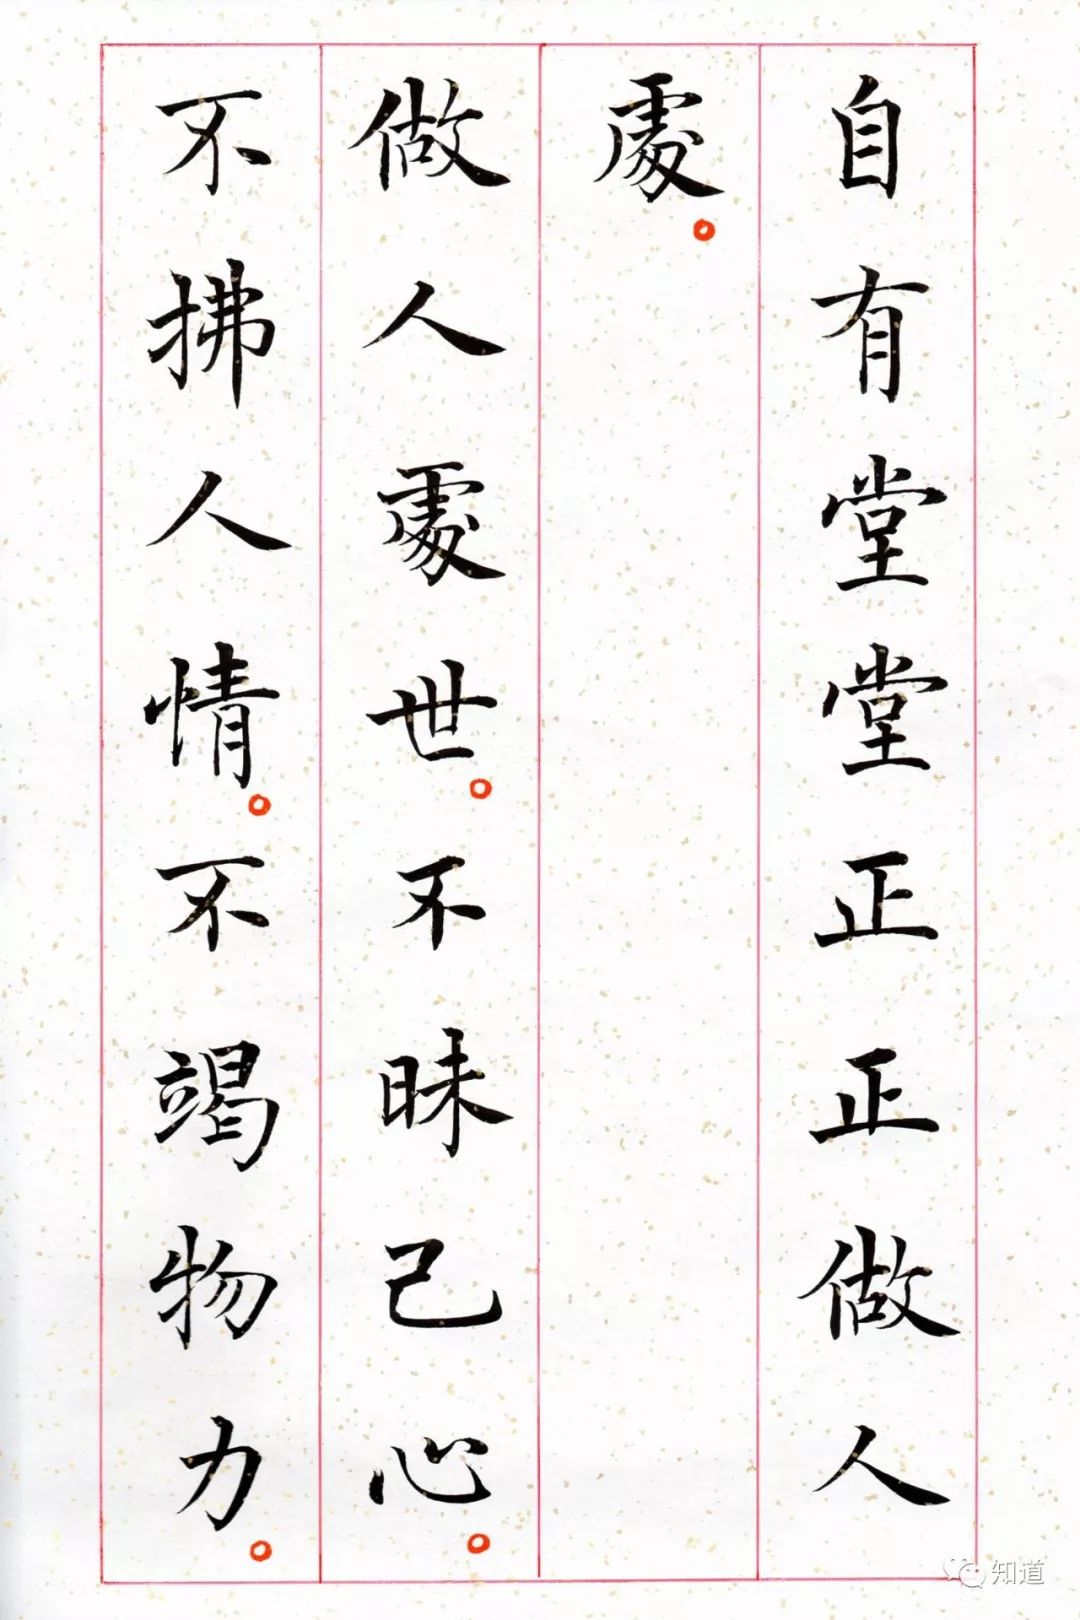 自有堂堂正正做人
處。
做人處世。不昧己心。
不拂人情。不竭物力。
知道